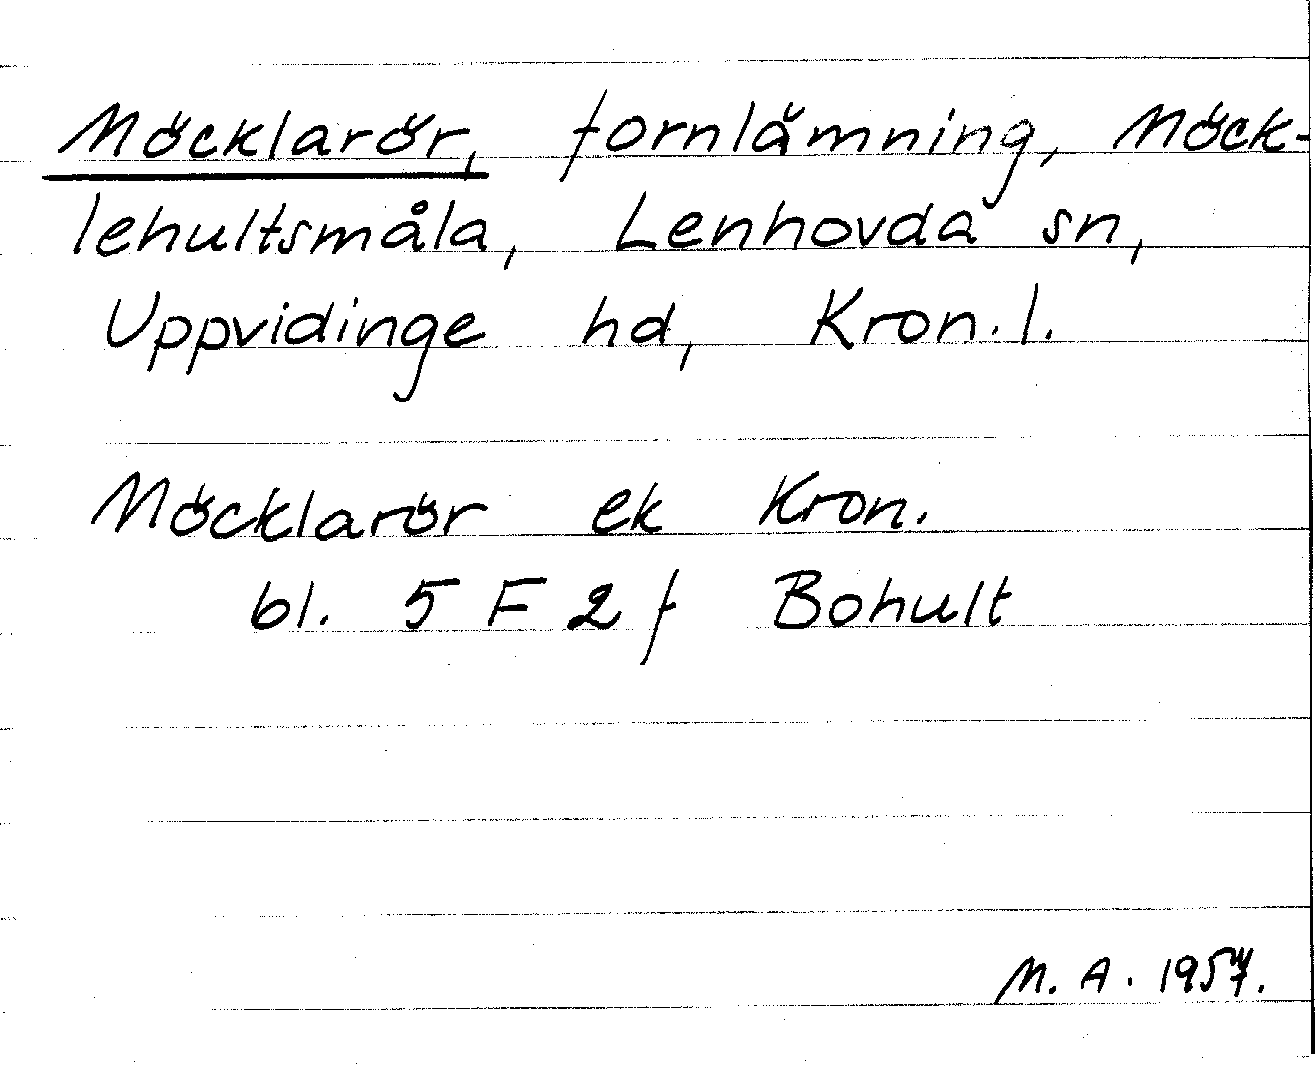 Möcklarör, fornlämning, Möck-
lehultsmåla, Lenhovda sn,
Uppvidinge hd, Kron.l.
Möcklarör ek Kron.
bl. 5 F 2 f Bohult
M. A. 1957.